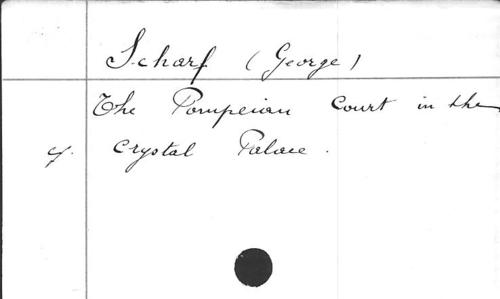 Scharf (George)
The Pompeian Court in the
Crystal Palace.